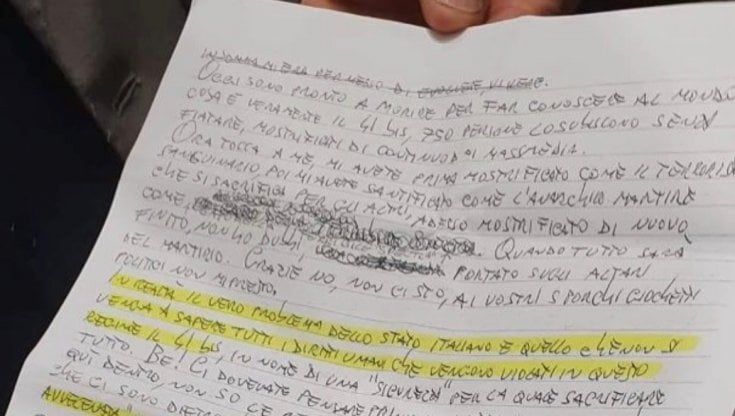 INSOMMA MI ERA PERMESSO DI EVOLVERE, VIVERE.
OGGI SONO PRONTO A MORIRE PER FAR CONOSCERE AL MONDO
COSA È VERAMENTE IL 41 BIS, 750 PERSONE LO SUBISCONO SENZA
FIATARE, MOSTRIFICATI DI CONTINUO DAI MASSMEDIA.
ORA TOCCA A ME, MI AVETE PRIMA MOSTRIFICATO COME IL TERRORIS
SANGUINARIO, POI MI AVETE SANTIFICATO COME L'ANARCHICO MARTIRE
CHE SI SACRIFICA PER GLI ALTRI, ADESSO MOSTRIFICATO DI NUOVO
COME, QUANDO TUTTO SARÀ
FINITO, NON HO DUBBI, PORTATO SUGLI ALTARI
DEL MARTIRIO. GRAZIE NO, NON CI STO, AI VOSTRI SPORCHI GIOCHETTI
POLITICI NON MI PRESTO.
IN REALTÀ IL VERO PROBLEMA DELLO STATO ITALIANO È QUELLO CHE NON SI
VENGA A SAPERE TUTTI I DIRITTI UMANI CHE VENGONO VIOLATI IN QUESTO
REGIME IL 41 BIS, IN NOME DI UNA "SICUREZZA" PER LA QUALE SACRIFICARE
TUTTO. BE! CI DOVEVATE PENSARE PRIMA
QUI DENTRO, NON SO CE
CHE CI SONO DIETRO
AVVELENATA